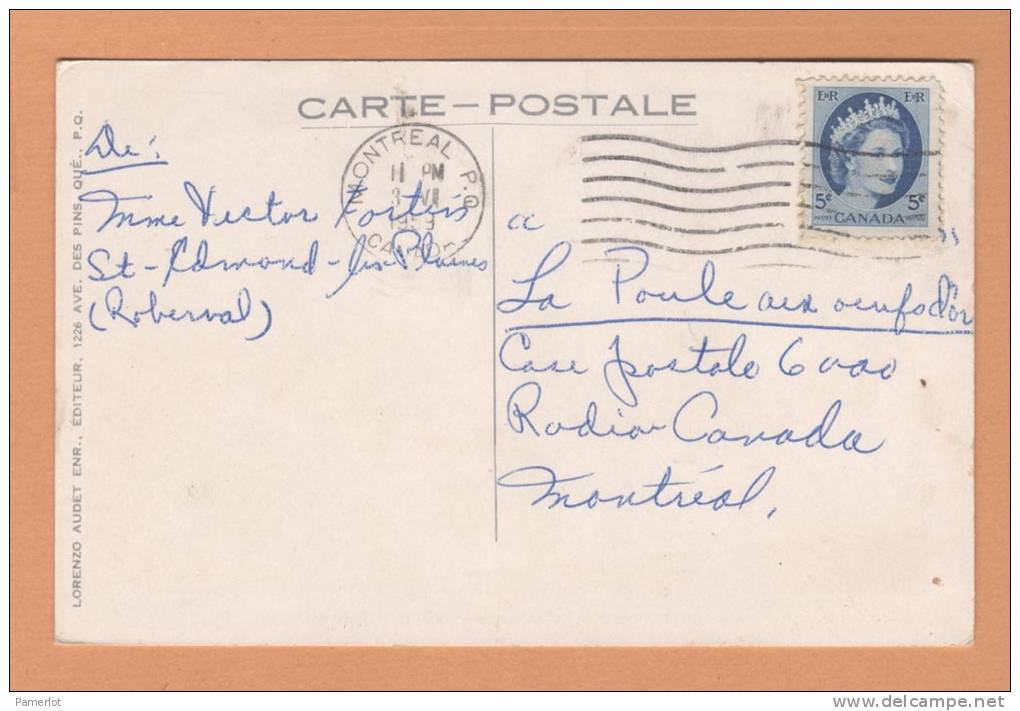 CARTE — POSTALE
LORENZO AUDET ENR., ÉDITEUR, 1226 AVE. DES PINS QUÉ., P.Q.
MONTREAL P.Q.
11 PM
CANADA
EIIR EIIR
5¢ 5¢
POSTES CANADA POSTAGE
De:
Mme Victor Fortin
St-Edmond-les-Plaines
(Roberval)
"
La Poule aux oeufs d'or
"
Case postale 6000
Radio Canada
Montréal,
Pamerlot
www.delcampe.net